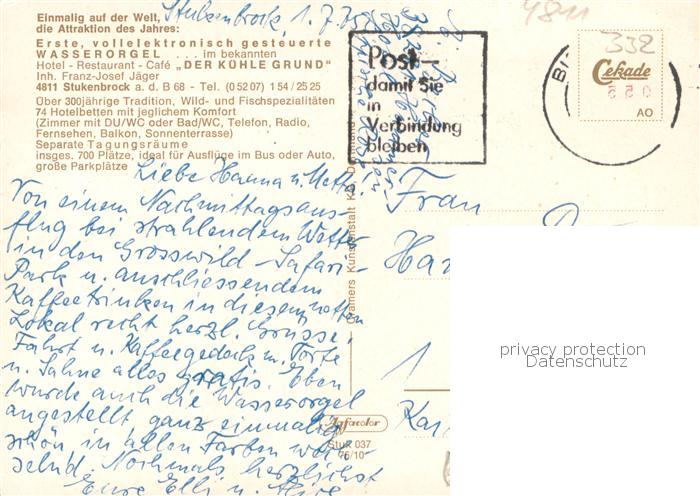 Einmalig auf der Welt,
die Attraktion des Jahres:
Stukenbrock, 1.7.75
Erste, vollelektronisch gesteuerte
WASSERORGEL ... im bekannten
Hotel - Restaurant - Café „DER KÜHLE GRUND"
Inh. Franz-Josef Jäger
4811 Stukenbrock a. d. B 68 - Tel. (0 52 07) 1 54 / 25 25
Über 300jährige Tradition, Wild- und Fischspezialitäten
74 Hotelbetten mit jeglichem Komfort
(Zimmer mit DU/WC oder Bad/WC, Telefon, Radio,
Fernsehen, Balkon, Sonnenterrasse)
Separate Tagungsräume
insges. 700 Plätze, ideal für Ausflüge im Bus oder Auto,
große Parkplätze
Liebe Hanna u.
Von einem Nachmittagsaus-
flug bei strahlendem Wetter
in den Grosswild-Safari-
Park u. anschliessendem
Kaffeetrinken in diesem netten
Lokal recht herzl. Grüsse.
Fahrt u. Kaffeegedeck m. Torte
u. Sahne alles gratis. Eben
wurde auch die Wasserorgel
angestellt, ganz einmalig
schön in allen Farben wech-
selnd. Nochmals herzlichst
Eure Elli u.
Cramers Kunstanstalt KG
Agfacolor
StuK 037
75/10
4811
332
Post-
damit Sie
in
Verbindung
bleiben
BI
Cekade
AO
Frau
Han
1
privacy protection
Datenschutz